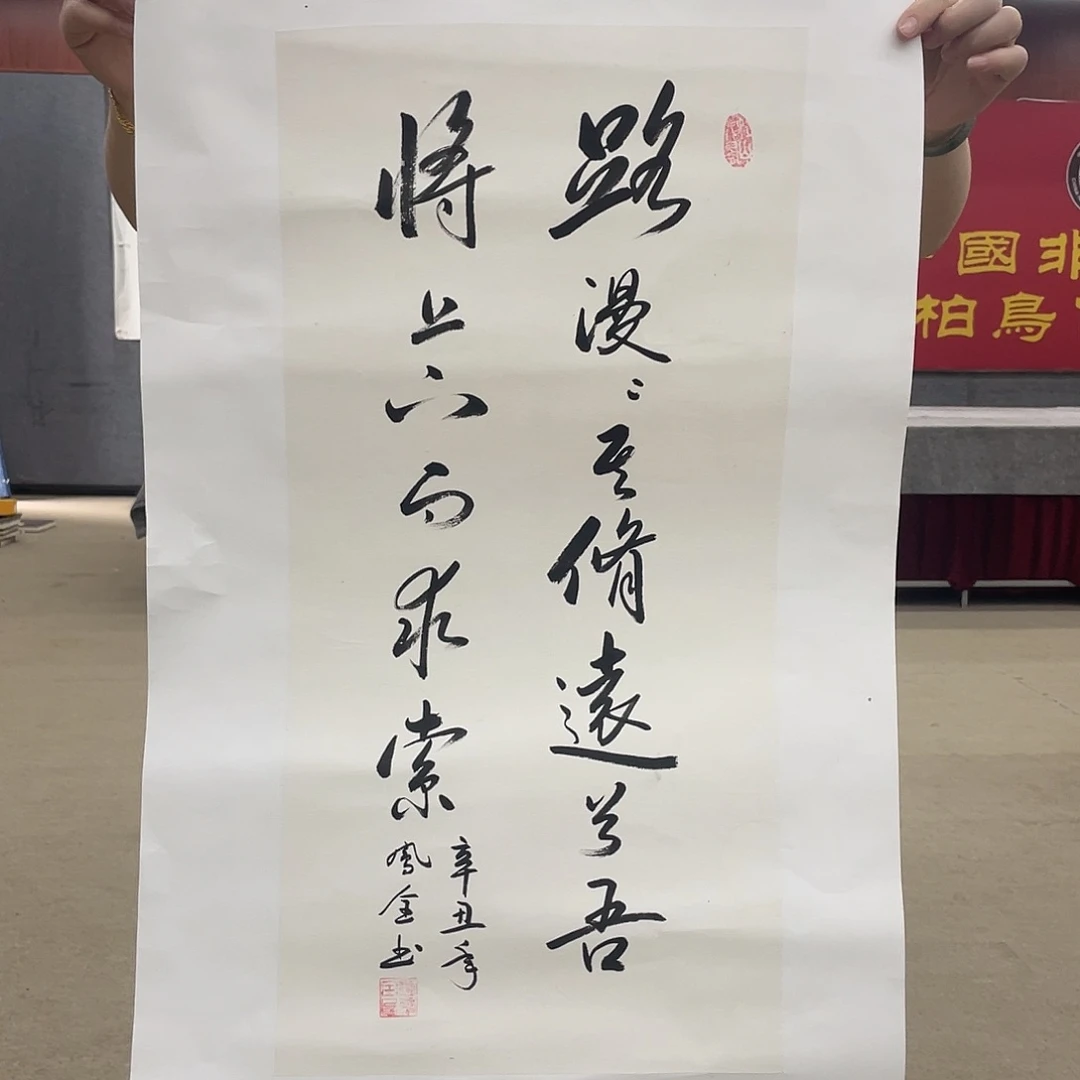 路漫〻其脩遠兮吾
將上下而求索
辛丑年
鳳金书
國非
柏鳥